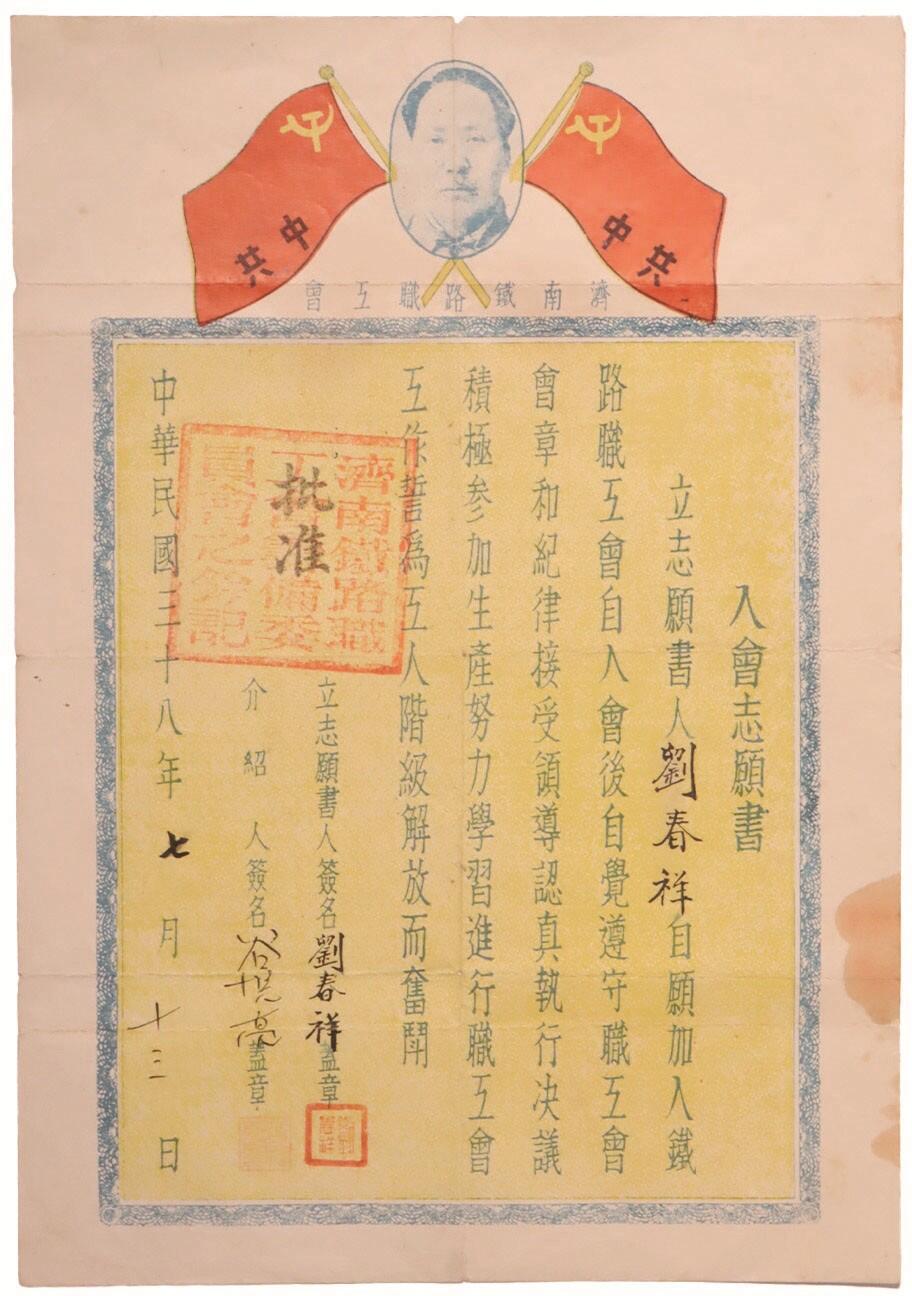 中共
中共
濟南鐵路職工會
入會志願書
立志願書人劉春祥自願加入鐵
路職工會自入會後自覺遵守職工會
會章和紀律接受領導認真執行决議
積極参加生產努力學習進行職工會
工作誓為工人階級解放而奮鬥
立志願書人簽名劉春祥蓋章
介紹人簽名谷 亮蓋章
批准
濟南鐵路職
工會籌備委
員會之鈐記
中華民國三十八年七月十三日